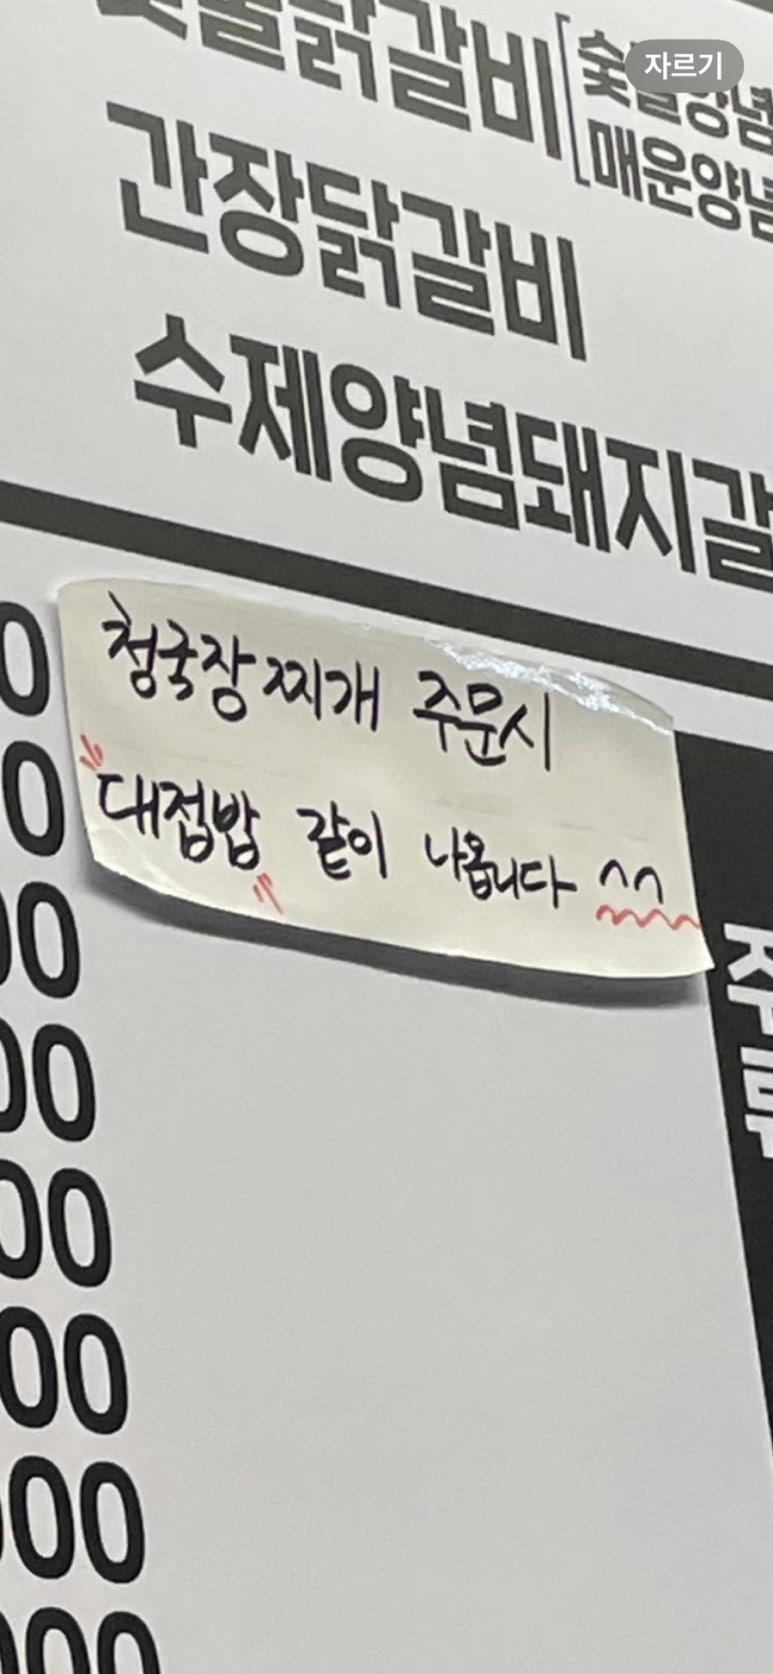 자르기
숯불닭갈비
숯불양념
매운양념
간장닭갈비
수제양념돼지갈
청국장 찌개 주문시
"대접밥" 같이 나옵니다 ^^
주류
0
0
00
00
00
00
000
000